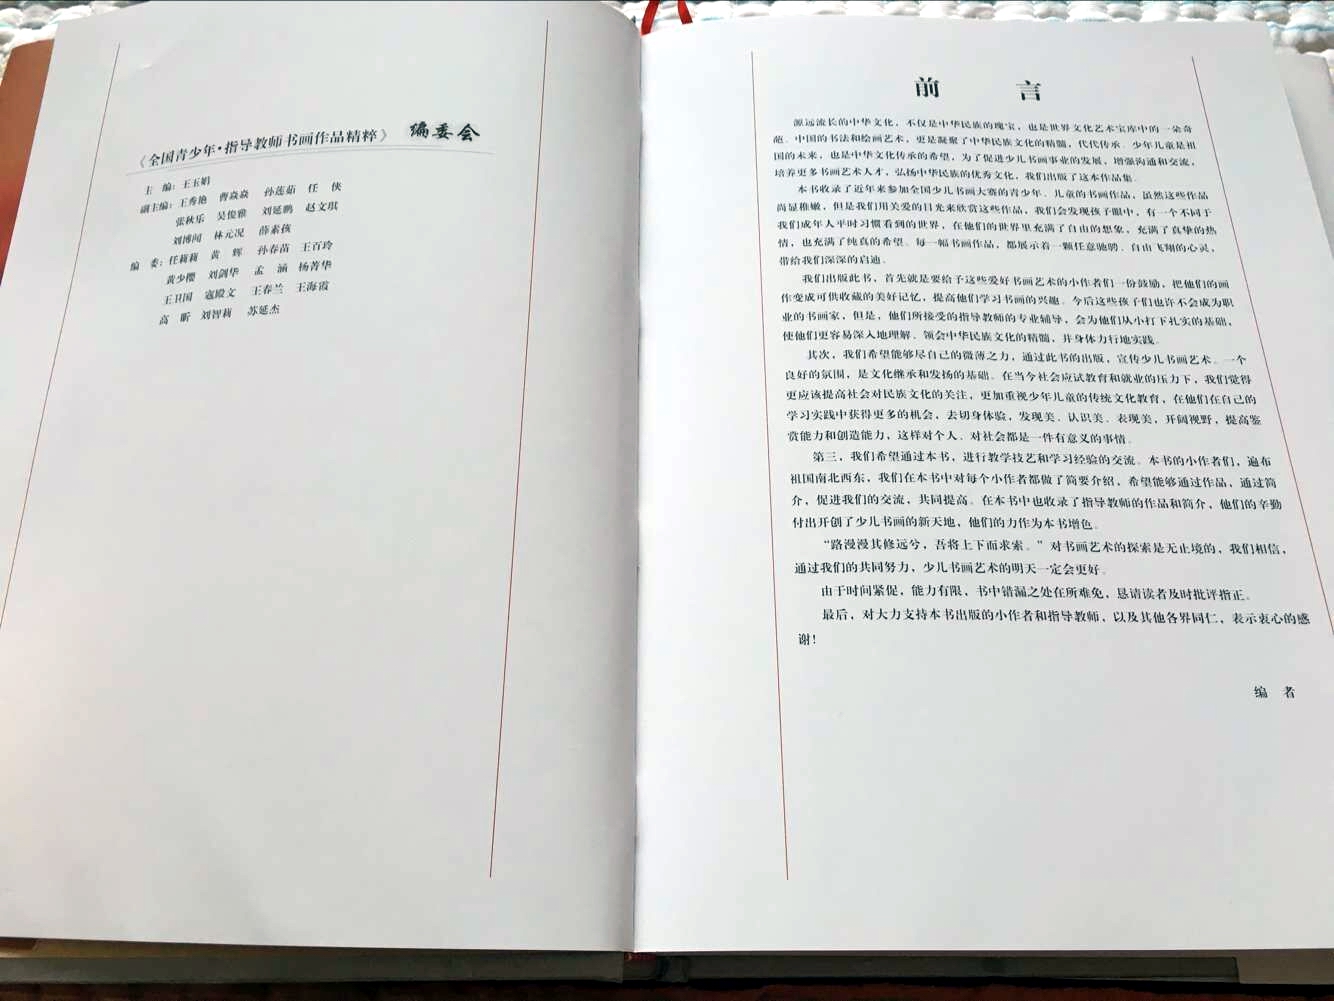 《全国青少年·指导教师书画作品精粹》 编委会
主 编：王玉娟
副主编：王秀艳 曹焱焱 孙莲茹 任 侠
张秋乐 吴俊雅 刘延鹏 赵文琪
刘博闻 林元况 薛素孩
编 委：任莉莉 黄 辉 孙春苗 王百玲
黄少樱 刘剑华 孟 涵 杨菁华
王卫国 寇殿文 王春兰 王海霞
高 昕 刘智莉 苏延杰
前 言
源远流长的中华文化，不仅是中华民族的瑰宝，也是世界文化艺术宝库中的一朵奇
葩。中国的书法和绘画艺术，更是凝聚了中华民族文化的精髓，代代传承。少年儿童是祖
国的未来，也是中华文化传承的希望，为了促进少儿书画事业的发展，增强沟通和交流，
培养更多书画艺术人才，弘扬中华民族的优秀文化，我们出版了这本作品集。
本书收录了近年来参加全国少儿书画大赛的青少年、儿童的书画作品，虽然这些作品
尚显稚嫩，但是我们用关爱的目光来欣赏这些作品，我们会发现孩子眼中，有一个不同于
我们成年人平时习惯看到的世界，在他们的世界里充满了自由的想象，充满了真挚的热
情，也充满了纯真的希望。每一幅书画作品，都展示着一颗任意驰骋、自由飞翔的心灵，
带给我们深深的启迪。
我们出版此书，首先就是要给予这些爱好书画艺术的小作者们一份鼓励，把他们的画
作变成可供收藏的美好记忆，提高他们学习书画的兴趣。今后这些孩子们也许不会成为职
业的书画家，但是，他们所接受的指导教师的专业辅导，会为他们从小打下扎实的基础，
使他们更容易深入地理解、领会中华民族文化的精髓，并身体力行地实践。
其次，我们希望能够尽自己的微薄之力，通过此书的出版，宣传少儿书画艺术。一个
良好的氛围，是文化继承和发扬的基础。在当今社会应试教育和就业的压力下，我们觉得
更应该提高社会对民族文化的关注，更加重视少年儿童的传统文化教育，在他们在自己的
学习实践中获得更多的机会，去切身体验，发现美、认识美、表现美，开阔视野，提高鉴
赏能力和创造能力，这样对个人、对社会都是一件有意义的事情。
第三，我们希望通过本书，进行教学技艺和学习经验的交流。本书的小作者们，遍布
祖国南北西东，我们在本书中对每个小作者都做了简要介绍，希望能够通过作品，通过简
介，促进我们的交流，共同提高。在本书中也收录了指导教师的作品和简介，他们的辛勤
付出开创了少儿书画的新天地，他们的力作为本书增色。
“路漫漫其修远兮，吾将上下而求索。”对书画艺术的探索是无止境的，我们相信，
通过我们的共同努力，少儿书画艺术的明天一定会更好。
由于时间紧促，能力有限，书中错漏之处在所难免，恳请读者及时批评指正。
最后，对大力支持本书出版的小作者和指导教师，以及其他各界同仁，表示衷心的感
谢！
编 者